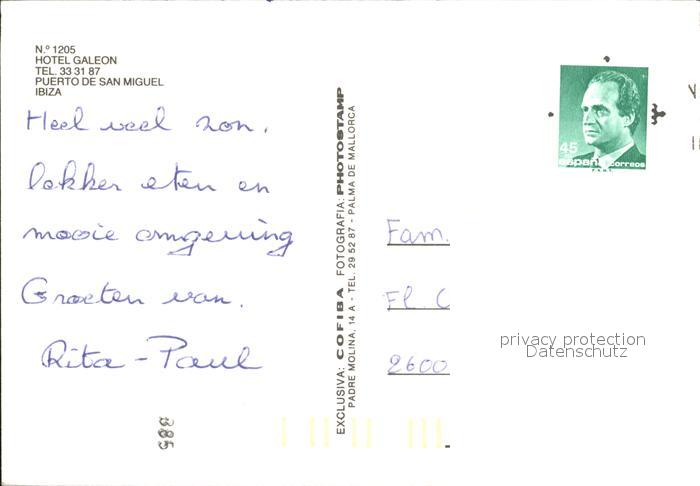 N.º 1205
HOTEL GALEON
TEL. 33 31 87
PUERTO DE SAN MIGUEL
IBIZA
Heel veel zon,
lekker eten en
mooie omgeving
Groeten van.
Rita - Paul
385
EXCLUSIVA: COFIBA FOTOGRAFIA: PHOTOSTAMP
PADRE MOLINA, 14 A - TEL. 29 52 87 - PALMA DE MALLORCA
45
españa correos
F.N.M.T.
Fam.
Fl. C
2600
privacy protection
Datenschutz